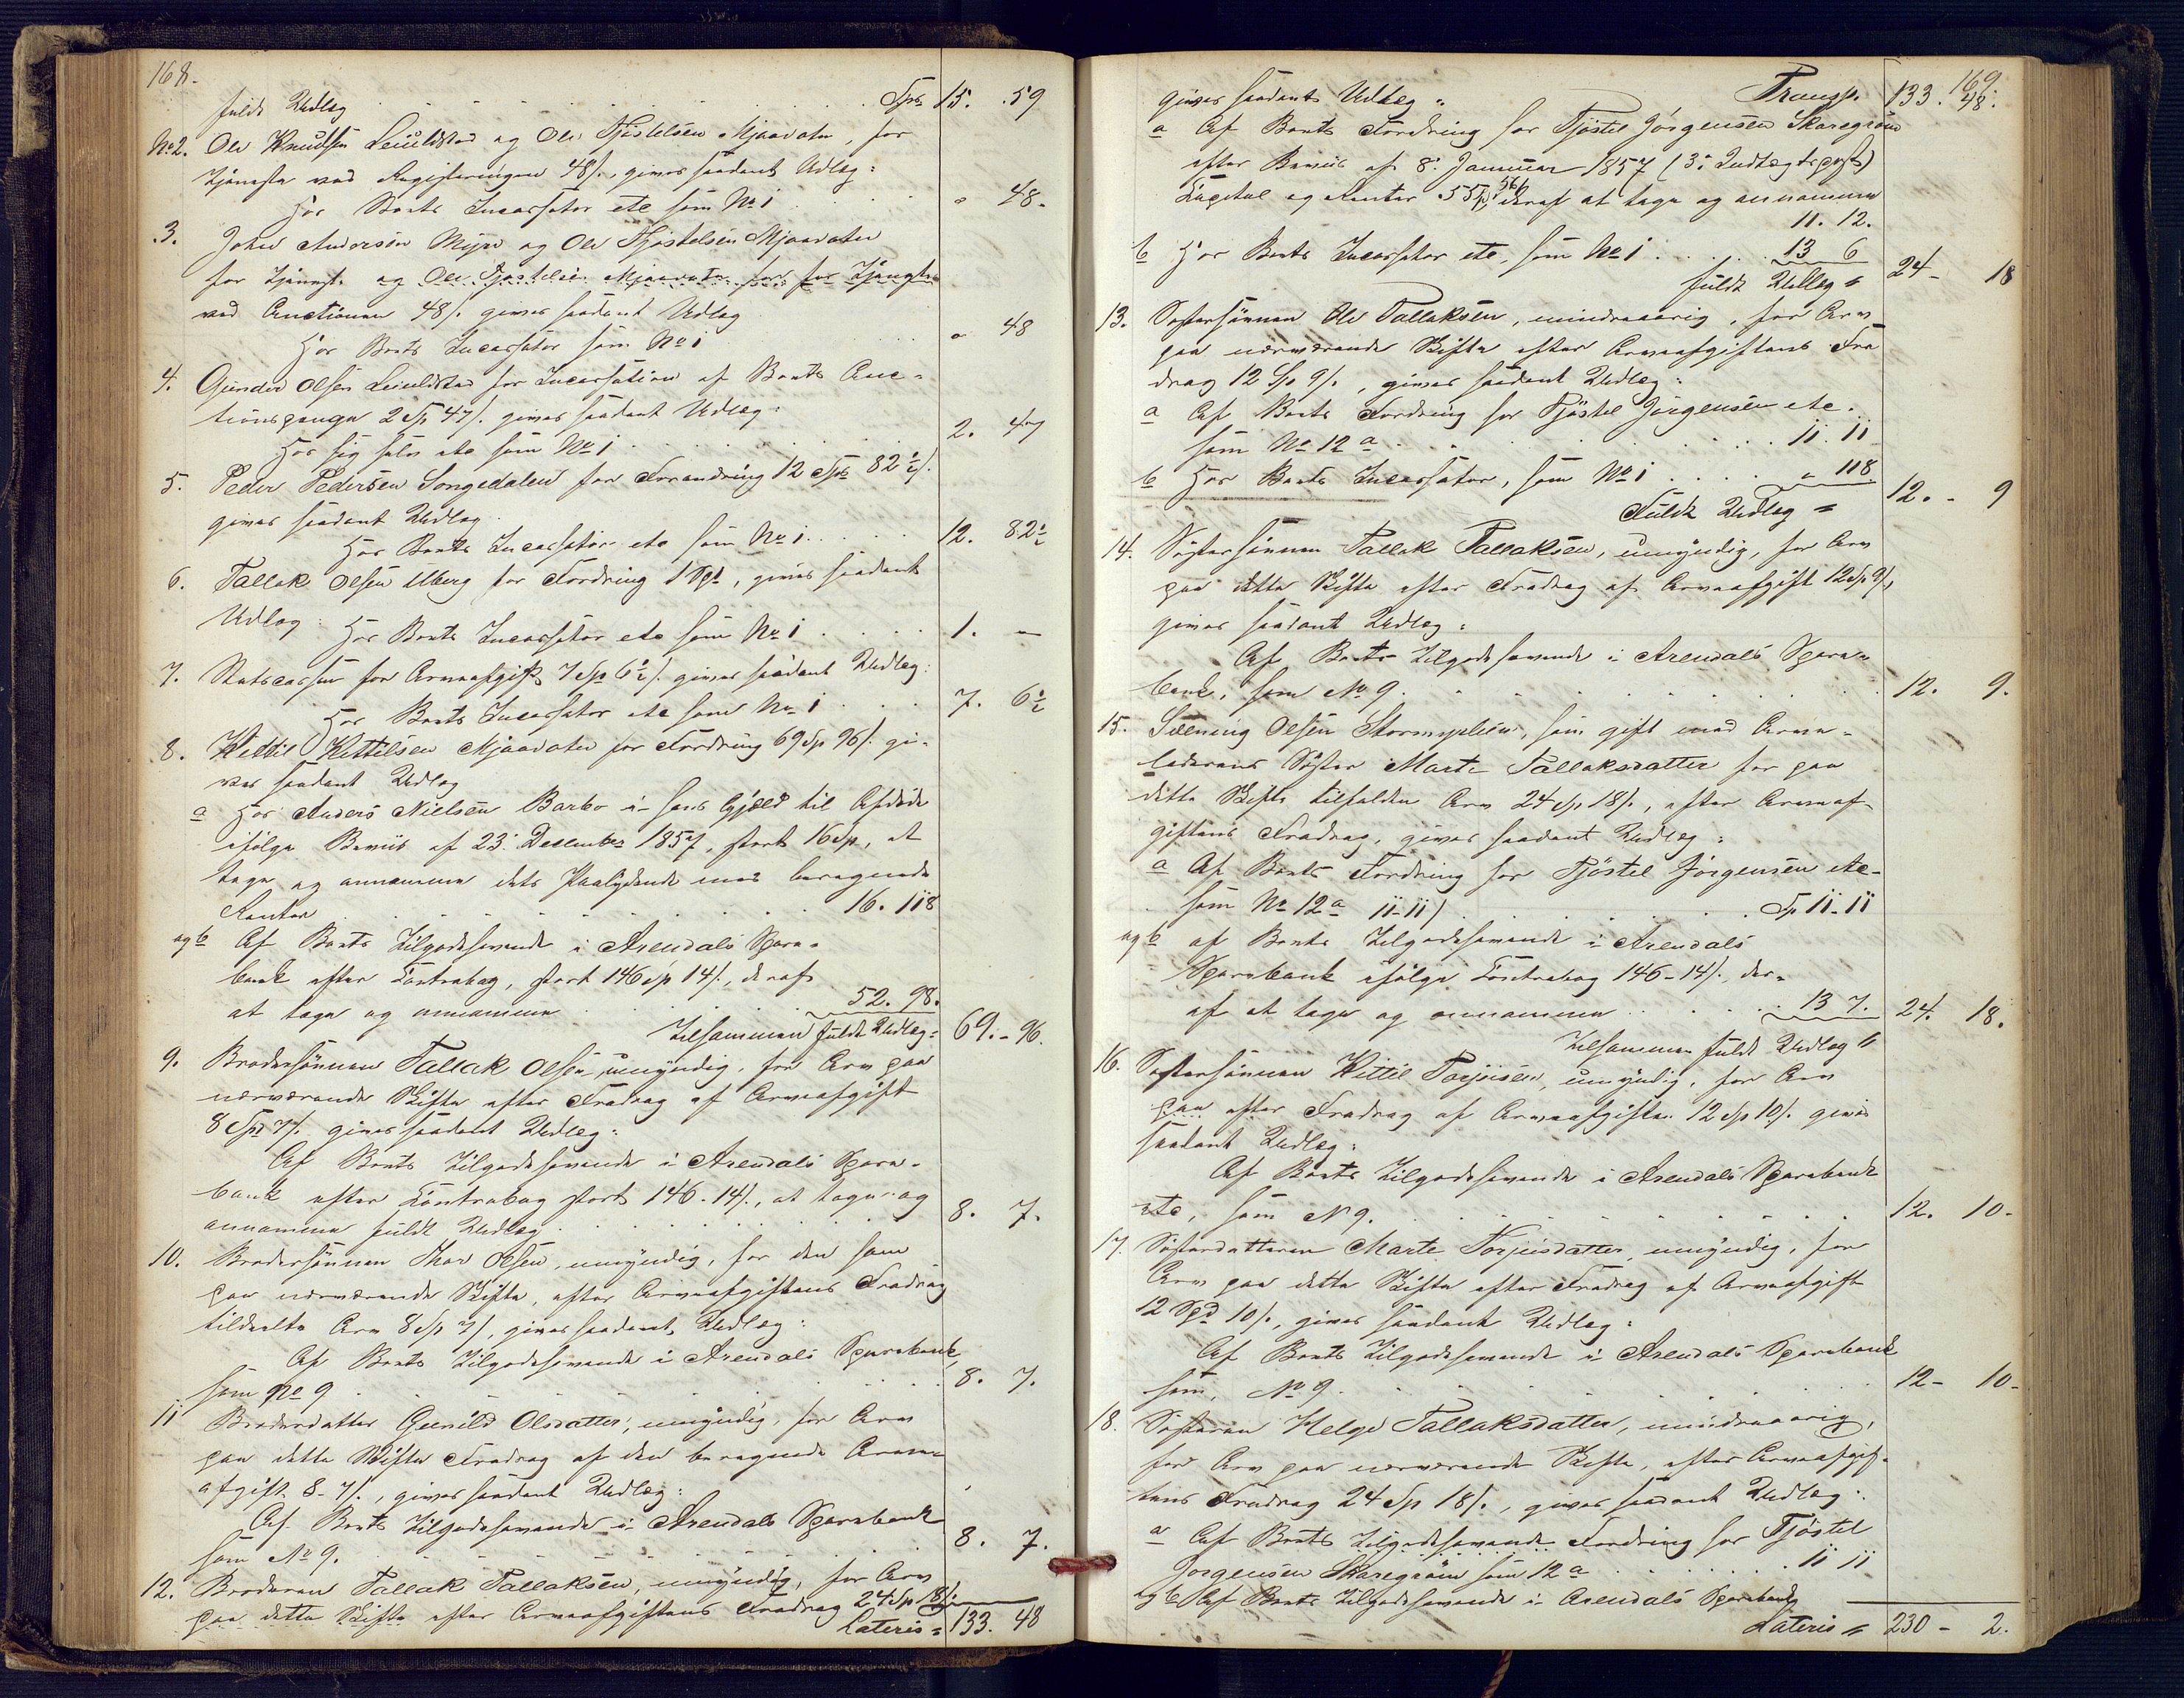 168.
fuldt Udlæg . . . . . Spd 15. 59
No 2. Ole Knudsen Leuildstad og Ole Tjøstelsen Mjaavatn, for
Tjeneste ved Registreringen 48/. gives saadant Udlæg:
Hos Boets Incassator etc som No 1 . . . . " 48.
3. John Andersen Myre og Ole Tjøstelsen Mjaavatn
for Tjenest. og Ole Tjøstelsen Mjaavatn for for Tjeneste
ved Auctionen 48/. gives saadant Udlæg
Hos Boets Incassator som No 1 . . . " 48
4. Gunder Olsen Leuildstad for Incassation af Boets Auc-
tionspenge 2 Sp 47/. gives saadant Udlæg:
Hos sig selv etc som No 1 . . . . 2. 47
5. Peder Pedersen Songedalen for Fordring 12 Spd 82½/.
gives saadant Udlæg
Hos Boets Incassator etc som No 1 . . . . 12. 82½
6. Tallak Olsen Uberg for Fordring 1 Spd, gives saadant
Udlæg: Hos Boets Incassator etc som No 1 . . . . 1. —
7. Statscassen for Arveafgift 7 Sp 6½/. gives saadant Udlæg:
Hos Boets Incassator etc som No 1 . . . 7. 6½
8. Kittil Kittilsen Mjaavatn for Fordring 69 Sp 96/. gi-
ves saadant Udlæg
a Hos Anders Nielsen Barbo i hans Gjæld til Afdøde
ifølge Beviis af 23. December 1857, stort 16 Sp, at
tage og annamme dets Paalydende med beregnede
Renter . . . . . 16. 118
og b Af Boets Tilgodehavende i Arendals Spare-
bank efter Contrabog, stort 146 Sp 14/., deraf
at tage og annamme . . . . 52. 98.
Tilsammen fuldt Udlæg = 69. - 96.
9. Brodersønnen Tallak Olsen, umyndig, for Arv paa
nærværende Skifte efter Fradrag af Arveafgift
8 Spd 7/. gives saadant Udlæg:
Af Boets Tilgodehavende i Arendals Spare-
bank efter Contrabog stort 146-14/., at tage og
annamme fuldt Udlæg . . . . . 8. 7.
10. Brodersønnen Thor Olsen, umyndig, for den ham
paa nærværende Skifte, efter Arveafgiftens Fradrag
tildeelte Arv 8 Sp 7/, gives saadant Udlæg:
Af Boets Tilgodehavende i Arendals Sparebank,
som No 9 . . . . . 8. 7.
11 Broderdatter Gunild Olsdatter, umyndig, for Arv
paa dette Skifte Fradrag af den beregnede Arve-
afgift 8-7/., gives saadant Udlæg:
Af Boets Tilgodehavende i Arendals Sparebank
som No 9. . . . . 8. 7.
12. Broderen Tallak Tallaksen, umyndig, for Arv
paa dette Skifte efter Arveafgiftens Fradrag 24 Sp 18/.
Lateris = 133. 48
169
gives saadant Udlæg: Transp. 133. 48.
a Af Boets Fordring hos Tjøstel Jørgensen Skaregrøm
efter Beviis af 8. Januar 1857 (3. Indtægtspost)
Capital og Renter 55 Sp 56/. deraf at tage og annamme
11. 12.
b Hos Boets Incassator etc, som No 1 . . . . 13 6
fuldt Udlæg " 24- 18
13. Søstersønnen Ole Tallaksen, mindreaarig, for Arv
paa nærværende Skifte efter Arveafgiftens Fra
drag 12 Sp 9/., gives saadant Udlæg:
a Af Boets Fordring hos Tjøstel Jørgensen etc.
som No 12 a . . . . . 11. 11
b Hos Boets Incassator, som No 1 . . . . " 118.
Fuldt Udlæg = 12. - 9
14. Søstersønnen Tallak Tallaksen, umyndig, for Arv
paa dette Skifte efter Fradrag af Arveafgift 12 Sp 9/,
gives saadant Udlæg:
Af Boets Tilgodehavende i Arendals Spare-
bank, som No 9. . . . . 12. 9.
15. Olsen, som gift med Arve-
laderens Søster Marte Tallaksdatter for paa
dette Skifte tilfalden Arv 24 Sp 18/., efter Arveaf-
giftens Fradrag, gives saadant Udlæg:
a Af Boets Fordring hos Tjøstel Jørgensen etc-
som No 12 a 11-11/ . . . . . Sp 11-11
og b af Boets Tilgodehavende i Arendals
Sparebank ifølge Contrabog 146-14/., der-
af at tage og annamme . . . . 13 7. 24. 18.
Tilsammen fuldt Udlæg "
16. Søstersønnen Kittil Torjusen, umyndig, for Arv
paa efter Fradrag af Arveafgiften 12 Sp 10/. gives
saadant Udlæg:
Af Boets Tilgodehavende i Arendals Sparebank
etc, som N 9. . . . . . 12. 10-
17. Søsterdatteren Marte Torjusdatter, umyndig, for
Arv paa dette Skifte efter Fradrag af Arveafgift
12 Spd 10/., gives saadant Udlæg:
Af Boets Tilgodehavende i Arendals Sparebank
som, No 9 . . . . . 12- 10-
18. Søsteren Helge Tallaksdatter, mindreaarig,
for Arv paa nærværende Skifte, efter Arveafgif-
tens Fradrag 24 Sp 18/., gives saadant Udlæg:
a Af Boets Tilgodehavende Fordring hos Tjøstel
Jørgensen Skaregrøm som 12 a . . . . . 11 11
og b Af Boets Tilgodehavende i Arendals Sparebank
Lateris " 230- 2.